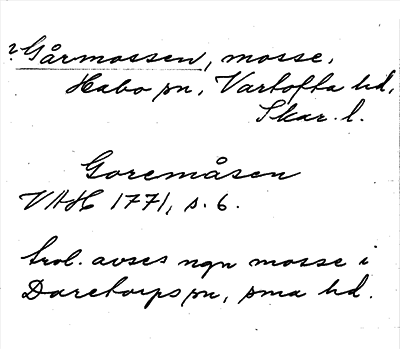 ? Gårmossen, mosse,
Habo sn, Vartofta hd,
Skar. l.
Goremåsen
VAH 1771, s. 6.
trol. avses ngn mosse i
Daretorps sn, sma hd.